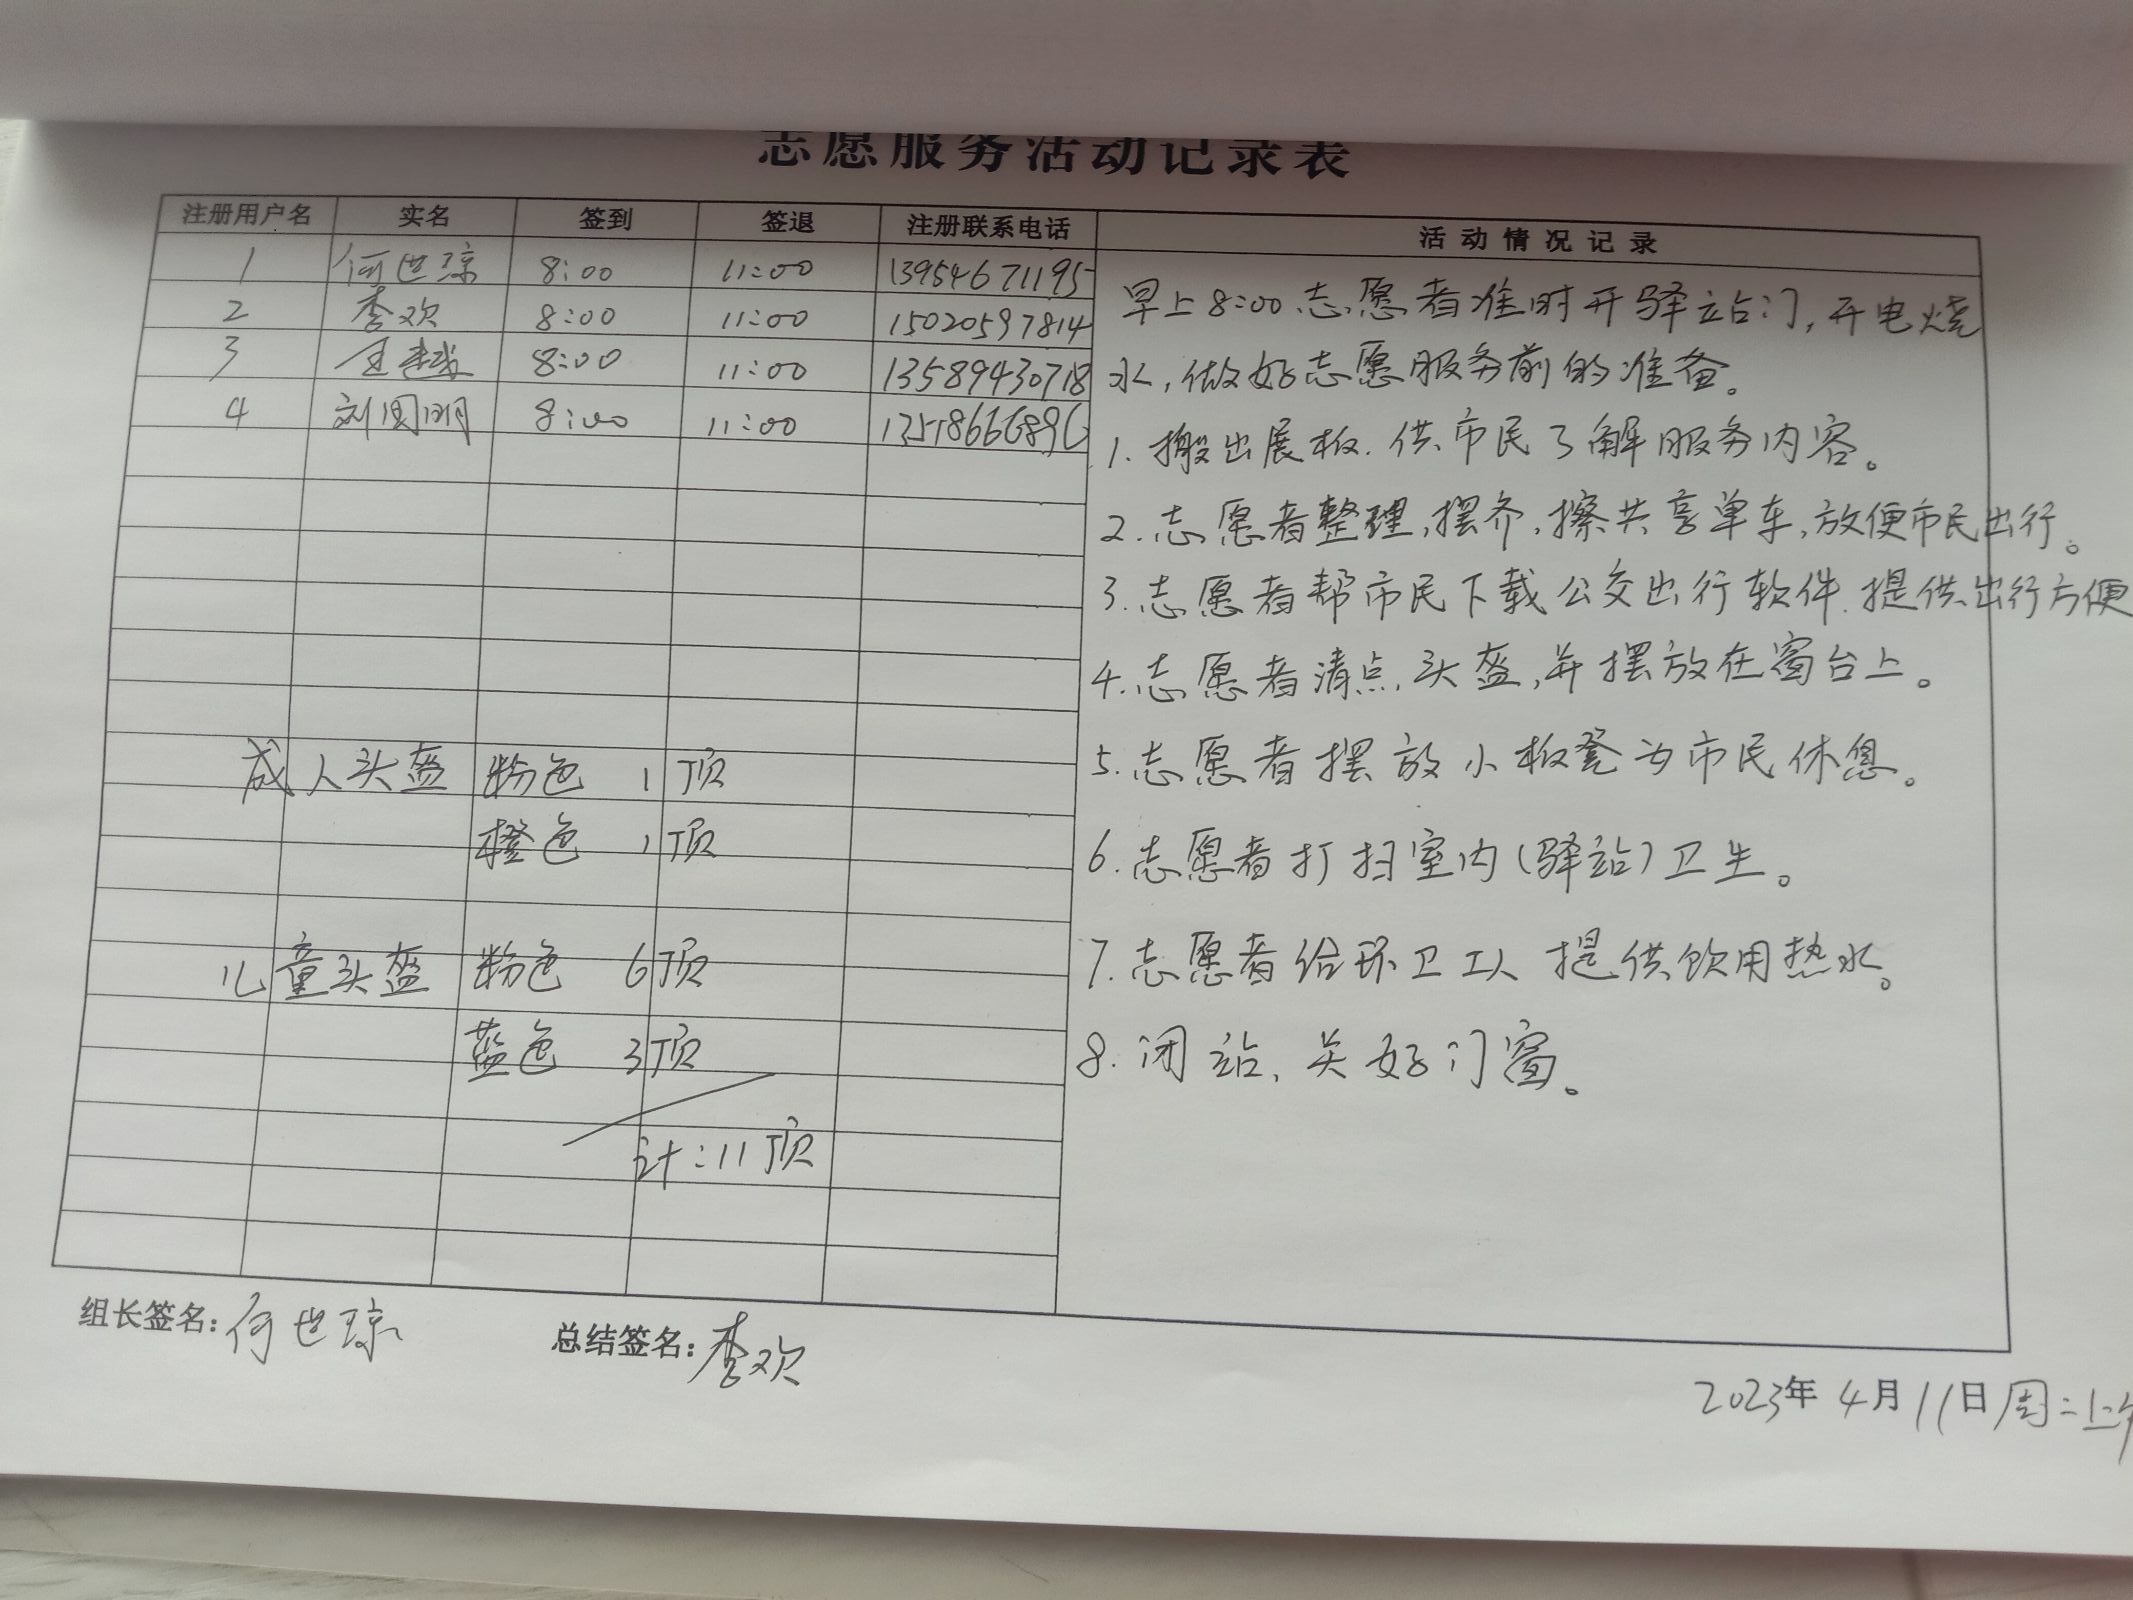 志愿服务活动记录表
注册用户名 实名 签到 签退 注册联系电话 活动情况记录
1 何世琼 8:00 11:00 13954671195
2 李欢 8:00 11:00 15020597814
3 越 8:00 11:00 13589430718
4 刘国明 8:00 11:00
早上8:00志愿者准时开驿站门,开电烧
水,做好志愿服务前的准备。
1.搬出展板.供市民了解服务内容。
2.志愿者整理,摆齐,擦共享单车,放便市民出行。
3.志愿者帮市民下载公交出行软件.提供出行方便
4.志愿者清点头盔,并摆放在窗台上。
5.志愿者摆放小板凳为市民休息。
6.志愿者打扫室内(驿站)卫生。
7.志愿者给环卫工人提供饮用热水。
8.闭站、关好门窗。
成人头盔 粉色 1顶
橙色 1顶
儿童头盔 粉色 6顶
蓝色 3顶
计:11顶
组长签名:何世琼 总结签名:李欢
2023年4月11日周二上午